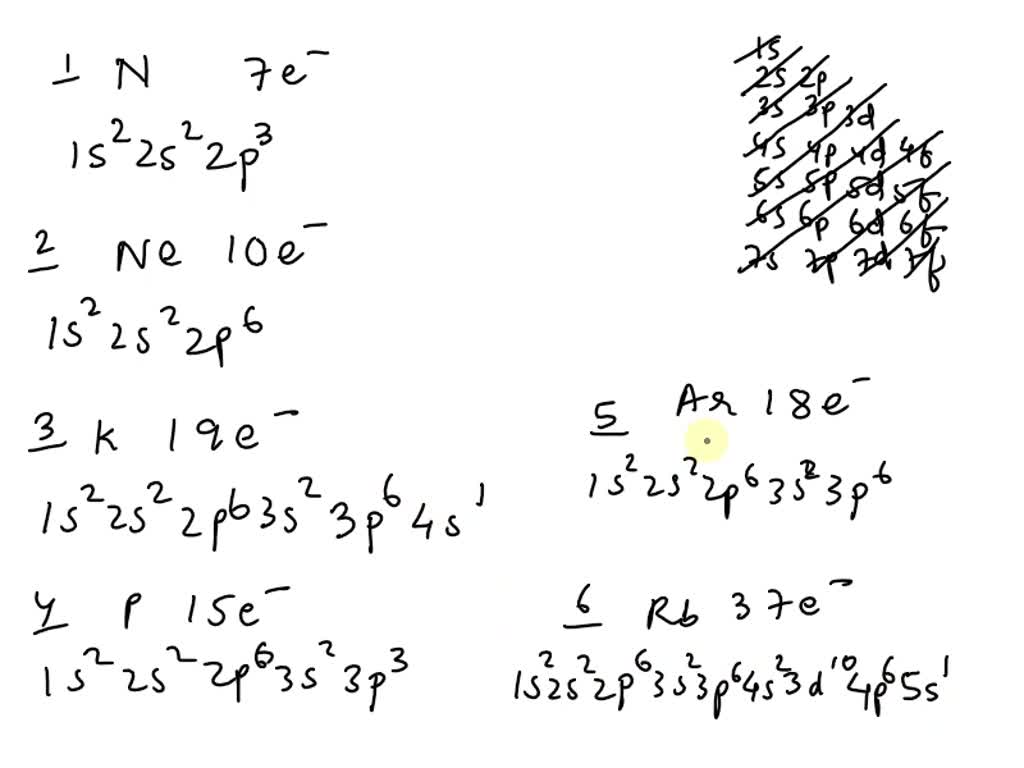 1 N 7e⁻
1s² 2s² 2p³
2 Ne 10e⁻
1s² 2s² 2p⁶
3 K 19e⁻
1s² 2s² 2p⁶ 3s² 3p⁶ 4s¹
4 P 15e⁻
1s² 2s² 2p⁶ 3s² 3p³
1s
2s 2p
3s 3p 3d
4s 4p 4d 4f
5s 5p 5d 5f
6s 6p 6d 6f
7s 7p 7d 7f
5 Ar 18e⁻
1s² 2s² 2p⁶ 3s² 3p⁶
6 Rb 37e⁻
1s² 2s² 2p⁶ 3s² 3p⁶ 4s² 3d¹⁰ 4p⁶ 5s¹